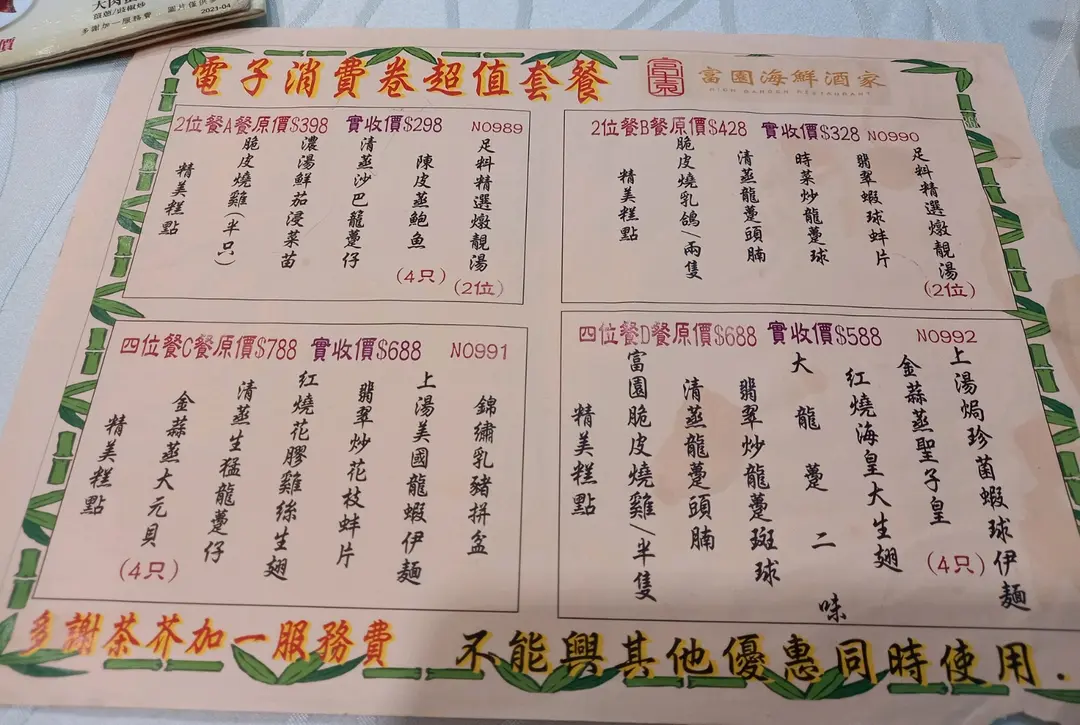 大肉
多謝加一服務費
2021-04
價
電子消費卷超值套餐
富園海鮮酒家
RICH GARDEN RESTAURANT
2位餐A餐原價$398 實收價$298 NO989
足料精選燉靚湯
(2位)
陳皮蒸鮑魚
(4只)
清蒸沙巴龍躉仔
濃湯鮮茄浸菜苗
脆皮燒雞(半只)
精美糕點
2位餐B餐原價$428 實收價$328 NO990
足料精選燉靚湯
(2位)
翡翠蝦球蚌片
時菜炒龍躉球
清蒸龍躉頭腩
脆皮燒乳鴿/兩隻
精美糕點
四位餐C餐原價$788 實收價$688 NO991
錦繡乳豬拼盆
上湯美國龍蝦伊麵
翡翠炒花枝蚌片
红燒花膠雞絲生翅
清蒸生猛龍躉仔
金蒜蒸大元貝
(4只)
精美糕點
四位餐D餐原價$688 實收價$588 NO992
上湯焗珍菌蝦球伊麵
金蒜蒸聖子皇
(4只)
红燒海皇大生翅
大龍躉二味
翡翠炒龍躉斑球
清蒸龍躉頭腩
富園脆皮燒雞/半隻
精美糕點
多謝茶芥加一服務費
不能興其他優惠同時使用.